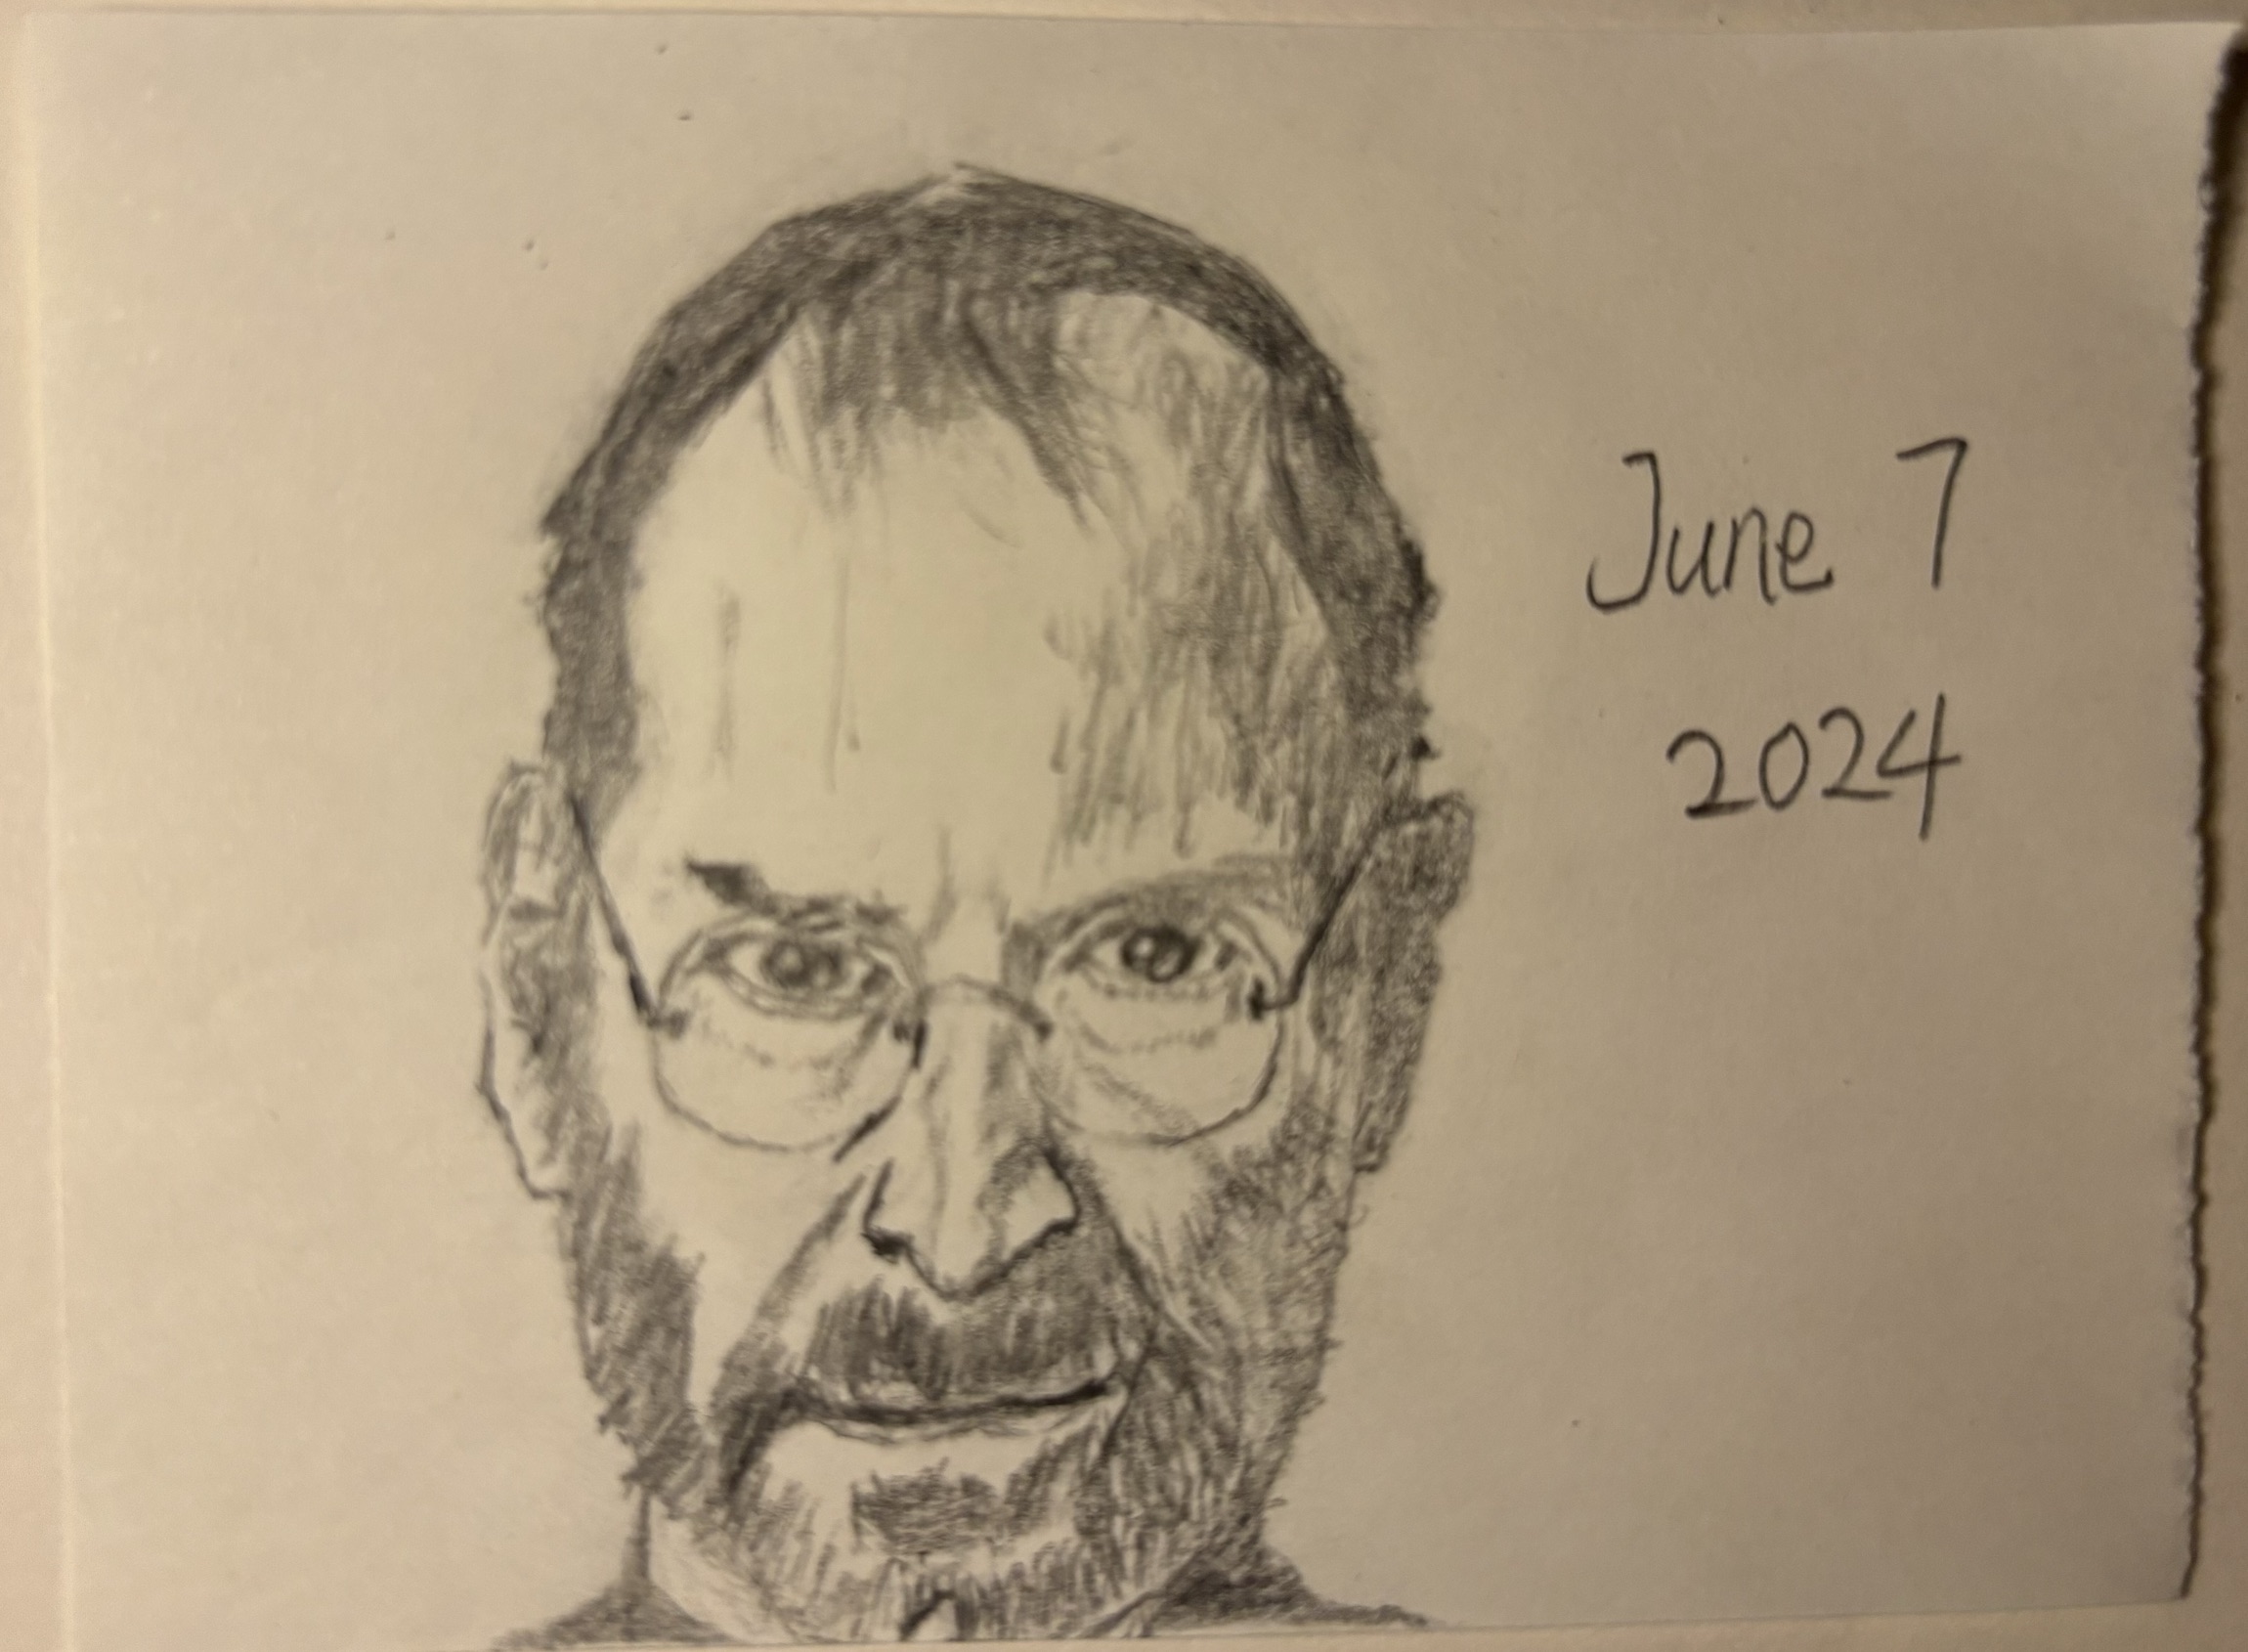 June 7
2024